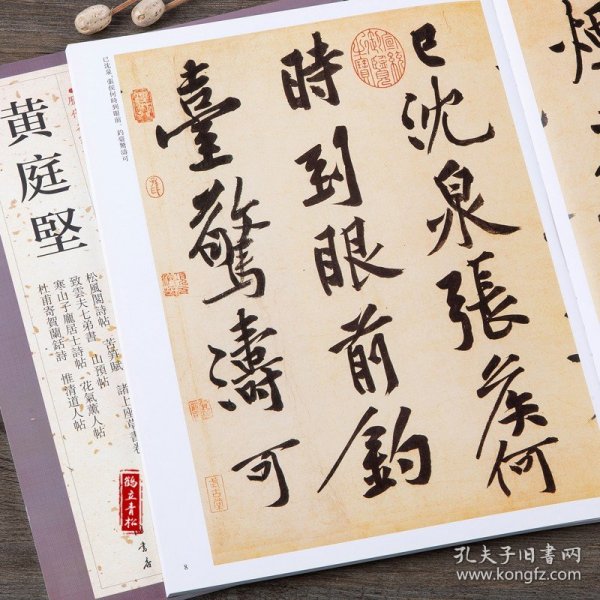 煙
已沈泉張侯何
時到眼前釣
臺驚濤可
已沈泉、張侯何時到眼前、釣臺驚濤可
8
黄庭堅
松風閣詩帖 苦笋賦 諸上座草書卷
致雲夫七弟書 山預帖
寒山子龐居士詩帖 花氣薰人帖
杜甫寄賀蘭銛詩 惟清道人帖
鶴立青松
書店
孔夫子旧书网
www.kongfz.com